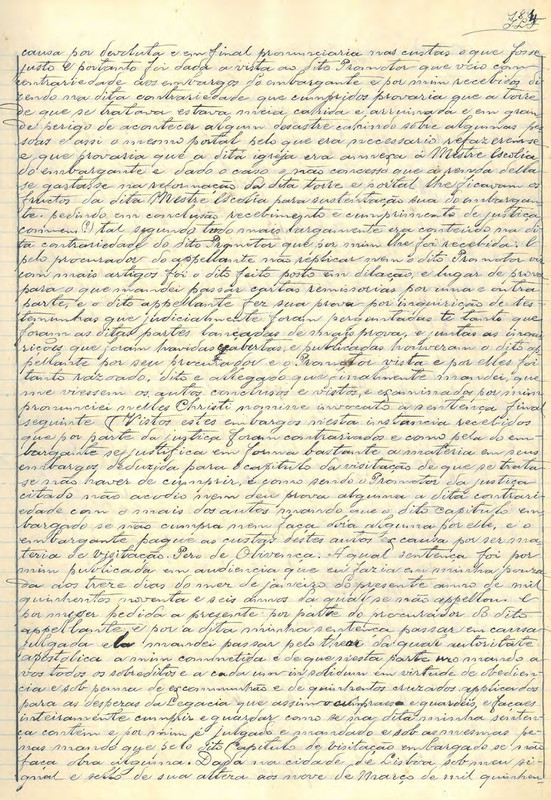 causa por devoluta e em final pronunciaria nas custas e que fosse
justo E portanto foi dada a vista ao dito Promotor que veio com
contrariedade aos embargos do embargante e por mim recebidos di
zendo na dita contrariedade que cumpridos provaria que a torre
de que se tratava estava meia cahida e arruinada e em gran
de perigo de acontecer algum desastre cahindo sobre algumas pes
soas e assi o mesmo portal pelo que era necessario refazerem-se
e que provaria que a dita igreja era annexa á Mestre Escolia
do embargante e dado o caso e não concesso que a renda della
se gastasse na reformação da dita torre e portal lhe ficavam os
fructos da dita Mestre Escolia para sustentação sua do embargan
te pedindo em conclusão recebimento e cumprimento de justiça
(?) tal segundo todo mais largamente era conteúdo na di
ta contrariedade do dito Promotor que por mim lhe foi recebida. E
pelo procurador do appellante não replicar nem o dito Promotor vir
com mais artigos foi o dito feito posto em dilação, e lugar de prova
para o que mandei passar cartas remissorias por uma e outra
parte, e o dito appellante fez sua prova por inquirição de tes
temunhas que judicialmente foram perguntadas te tanto que
foram as ditas partes lançadas de mais prova, e juntas as inqui
rições que foram havidas abertas, e publicadas houveram o dito ap
pellante por seu procurador e o Promotor vista e por elles foi
tanto razoado, dito e allegado que finalmente mandei, que
me viessem os autos conclusos e vistos, e examinados por mim
pronunciei nelles Christi nomine invocato a sentença final
seguinte Vistos estes embargos nesta instancia recebidos
que por parte da justiça foram contrariados e como pelo do em-
bargante se justifica em forma bastante a materia em seus
embargos deduzida para o capitulo da visitação de que se trata
se não haver de cumprir, e como sendo o Promotor da justiça
citado não acodio nem deu prova alguma a dita contrari-
edade com o mais dos autos mando que o dito capitulo em
bargado se não cumpra nem faça obra alguma por elle, e o
embargante pague as custas destes autos ex causa por ser ma-
teria de visitação. Pero de Olivença. A qual sentença foi por
mim publicada em audiencia que eu fazia em minha pousa
da aos treze dias do mez de Janeiro do presente anno de mil
quinhentos noventa e seis annos da qual se não appellou. E
por me ser pedida a presente por parte do procurador do dito
appellante e por a dita minha sentença passar em cousa
julgada mandei passar pelo theor da qual autoritate
apostolica a mim commetida e de que nesta parte uso mando a
vos todos os sobreditos e a cada um in solidum em virtude de obedien
cia e sob penna de excommunhão e de quinhentos cruzados applicados
para as despezas da Legacia que assim cumpraes e guardeis, e façaes
inteiramente cumprir e guardar como se na dita minha senten
ça contém e por mim é julgado e mandado e sob as mesmas pe-
nas mando que pelo dito Capitulo de visitação embargado se não
faça obra alguma. Dada na cidade de Lisboa sob meu si-
gnal e sello de sua alteza aos nove de Março de mil quinhen